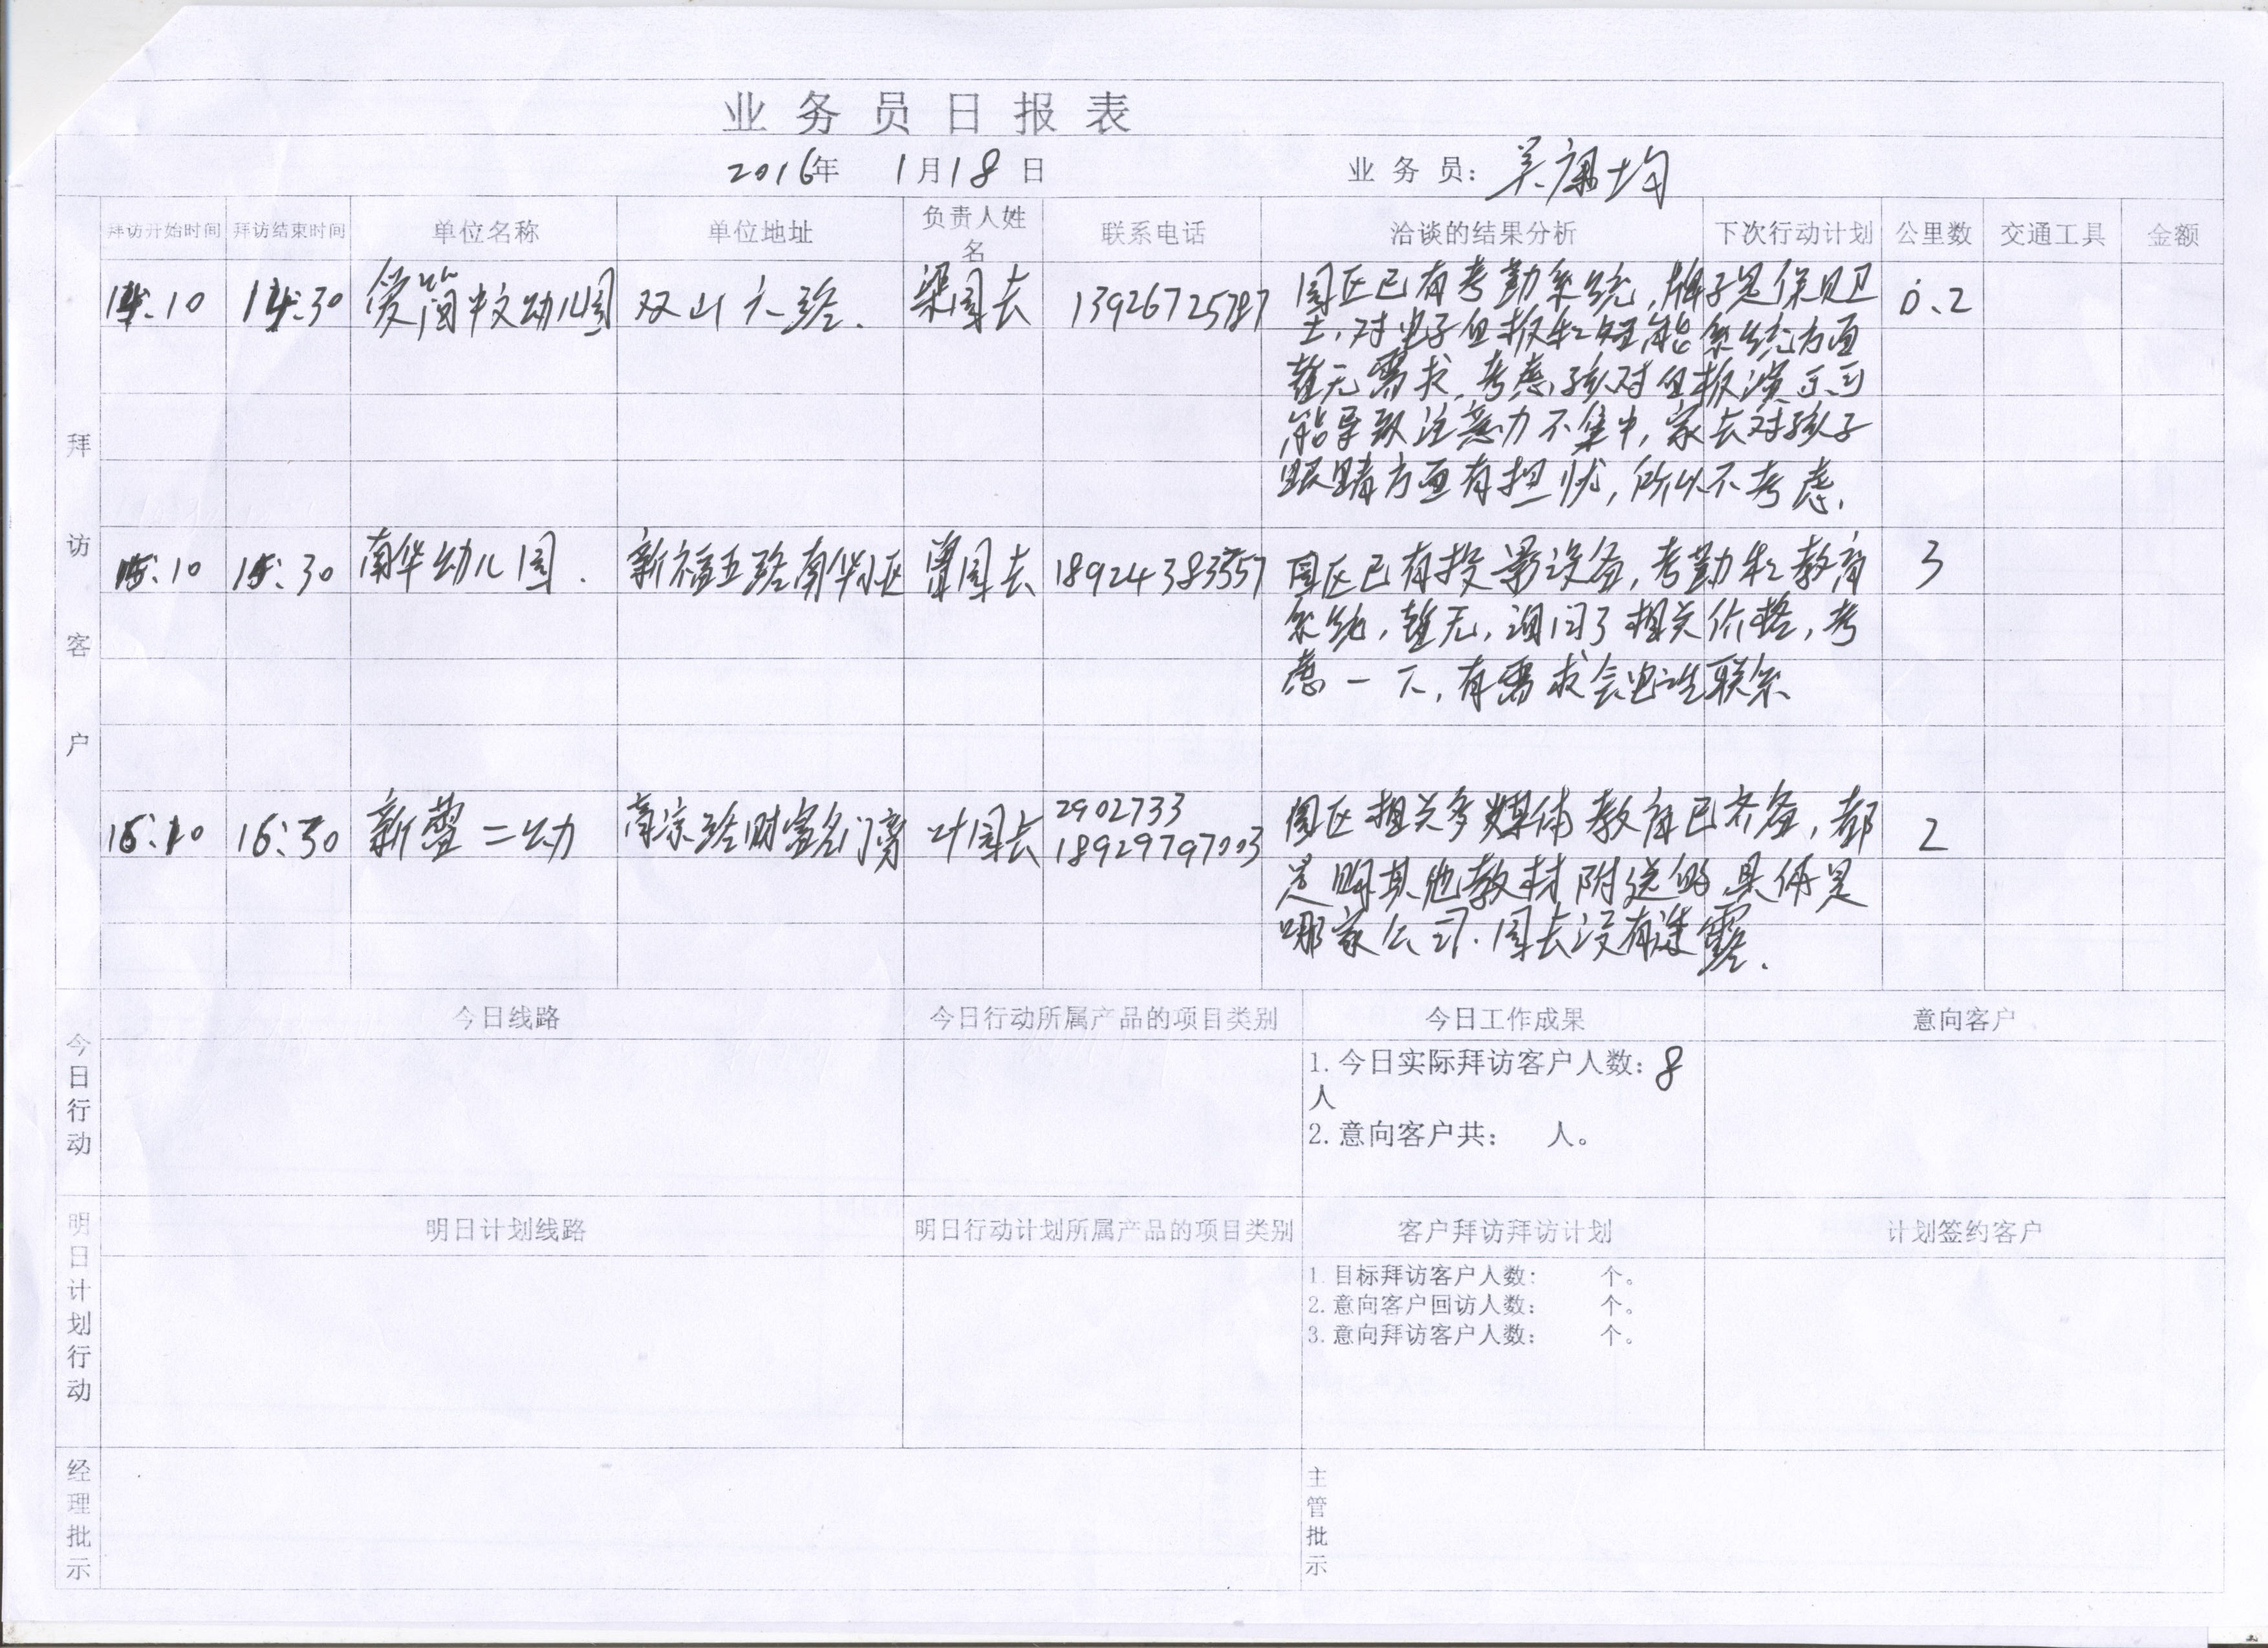 业务员日报表
2016年 1月18日 业务员：吴康均
拜访开始时间 拜访结束时间 单位名称 单位地址 负责人姓名 联系电话 洽谈的结果分析 下次行动计划 公里数 交通工具 金额
拜访客户
14:10 14:30 爱简中文幼儿园 双山六路. 梁园长 13926725787 园区已有考勤系统，牌子是保贝卫 0.2
士，对电子白板和智能系统方面
暂无需求，考虑孩对白板演示可
能导致注意力不集中，家长对孩子
眼睛方面有担忧，所以不考虑.
15:10 15:30 南华幼儿园. 新福五路南华小区 曾园长 18924383557 园区已有投影设备，考勤和教育 3
系统，暂无，询问了相关价格，考
虑一下，有需求会电话联系
16:10 16:30 新蕾二幼 南凉路财富名门旁 叶园长 2902733
18929797003 园区相关多媒体教育已齐备，都 2
是购其他教材附送的具体是
哪家公司.园长没有透露.
今日行动
今日线路 今日行动所属产品的项目类别 今日工作成果 意向客户
1.今日实际拜访客户人数：8
人
2.意向客户共： 人。
明日计划行动
明日计划线路 明日行动计划所属产品的项目类别 客户拜访拜访计划 计划签约客户
1.目标拜访客户人数： 个。
2.意向客户回访人数： 个。
3.意向拜访客户人数： 个。
经理批示 主管批示